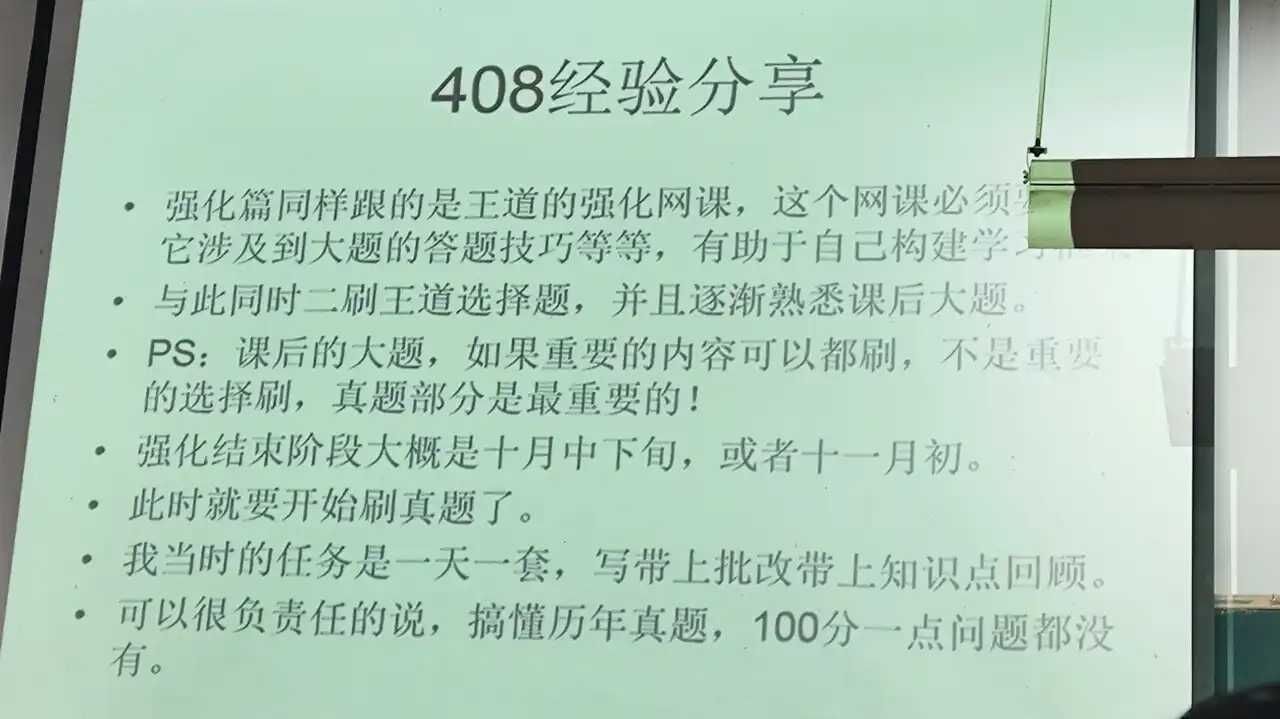 408经验分享
• 强化篇同样跟的是王道的强化网课，这个网课必须
它涉及到大题的答题技巧等等，有助于自己构建学习
• 与此同时二刷王道选择题，并且逐渐熟悉课后大题。
• PS：课后的大题，如果重要的内容可以都刷，不是重要
的选择刷，真题部分是最重要的！
• 强化结束阶段大概是十月中下旬，或者十一月初。
• 此时就要开始刷真题了。
• 我当时的任务是一天一套，写带上批改带上知识点回顾。
• 可以很负责任的说，搞懂历年真题，100分一点问题都没
有。